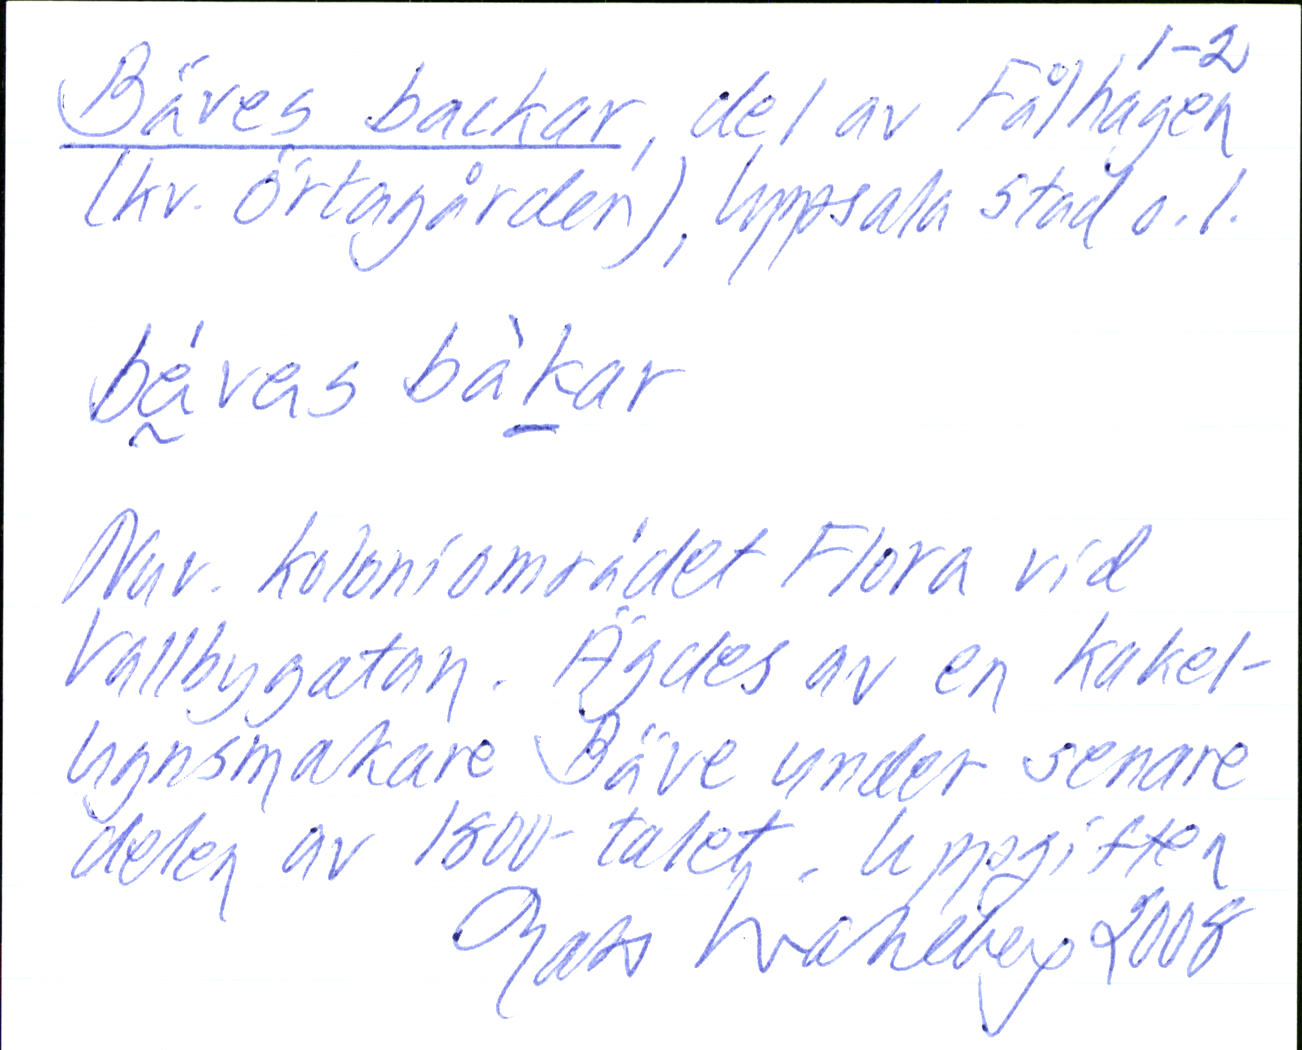 1-2
Bäves backar, del av Fålhagen
(kv. Örtagården), Uppsala stad o. l.
bä́vas bàkar
Nuv. koloniområdet Flora vid
Vallbygatan. Ägdes av en kakel-
ugnsmakare Bäve under senare
delen av 1800-talet. Uppgiften
Mats Wahlberg 2008